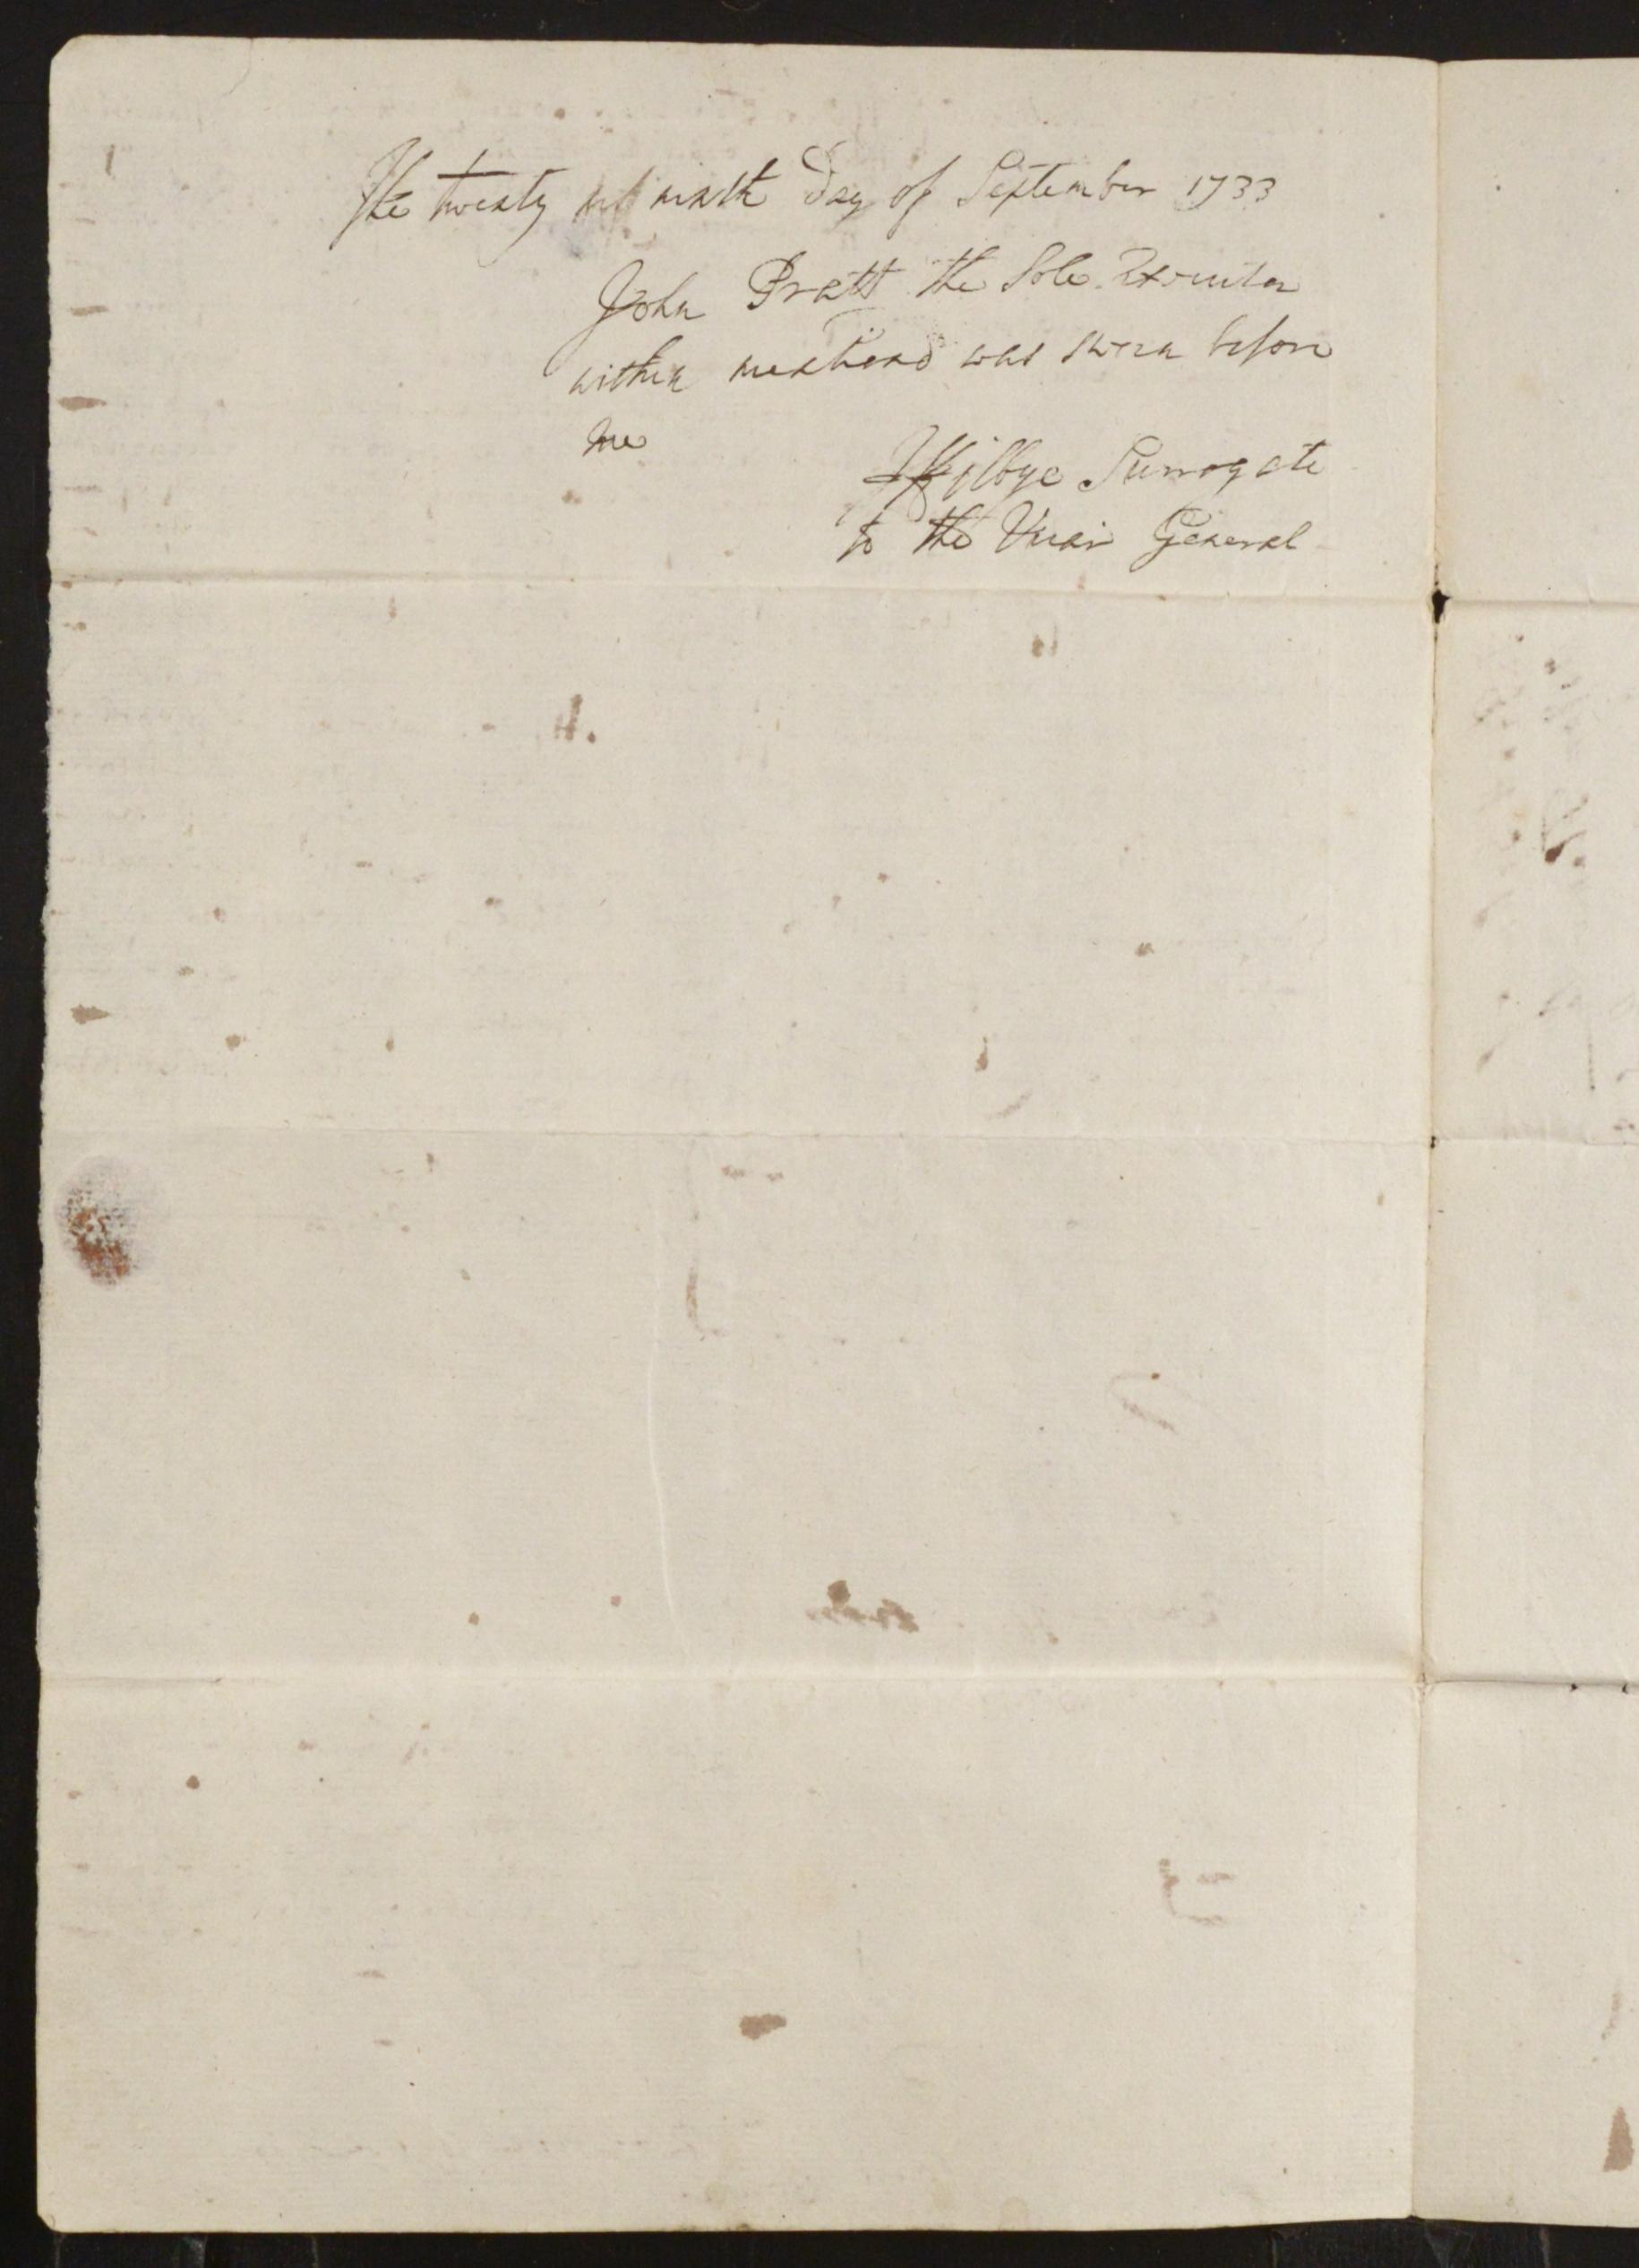 The twenty ninth Day of September 1733
John Pratt the Sole Executor
within mentiond was sworn before
me
Surrogate
to the Vicar General